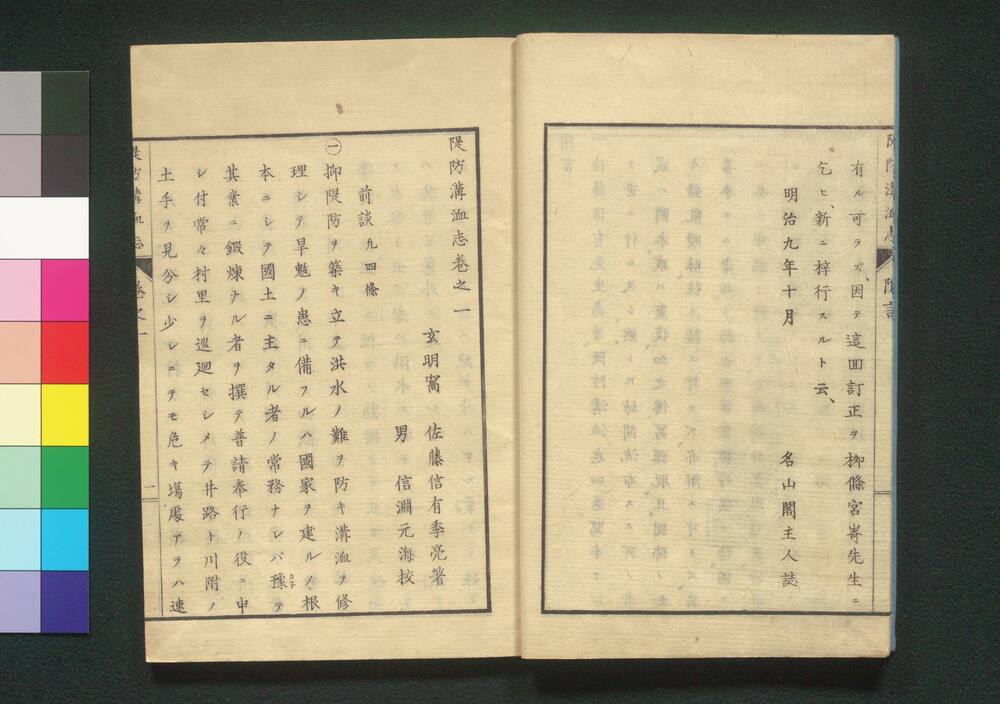 有ル可ラズ、因テ這回訂正ヲ栁條宮嵜先生ニ
乞ヒ、新ニ梓行スルト云、
明治九年十月　名山閣主人誌
隄防溝洫志巻之一
玄明窩　佐藤信有季亮著
男　信淵元海挍
前談九四條
㊀抑隄防ヲ築キ立テ洪水ノ難ヲ防キ溝洫ヲ修
理シテ旱魃ノ患ニ備フルハ國家ヲ建ルノ根
本ニシテ國土ニ主タル者ノ常務ナレバ豫テ
其業ニ鍛煉ナル者ヲ撰テ普請奉行ノ役ニ申
シ付常々村里ヲ巡廻セシメテ井路ト川附ノ
土手ヲ見分シ少シニテモ危キ塲處アラハ速